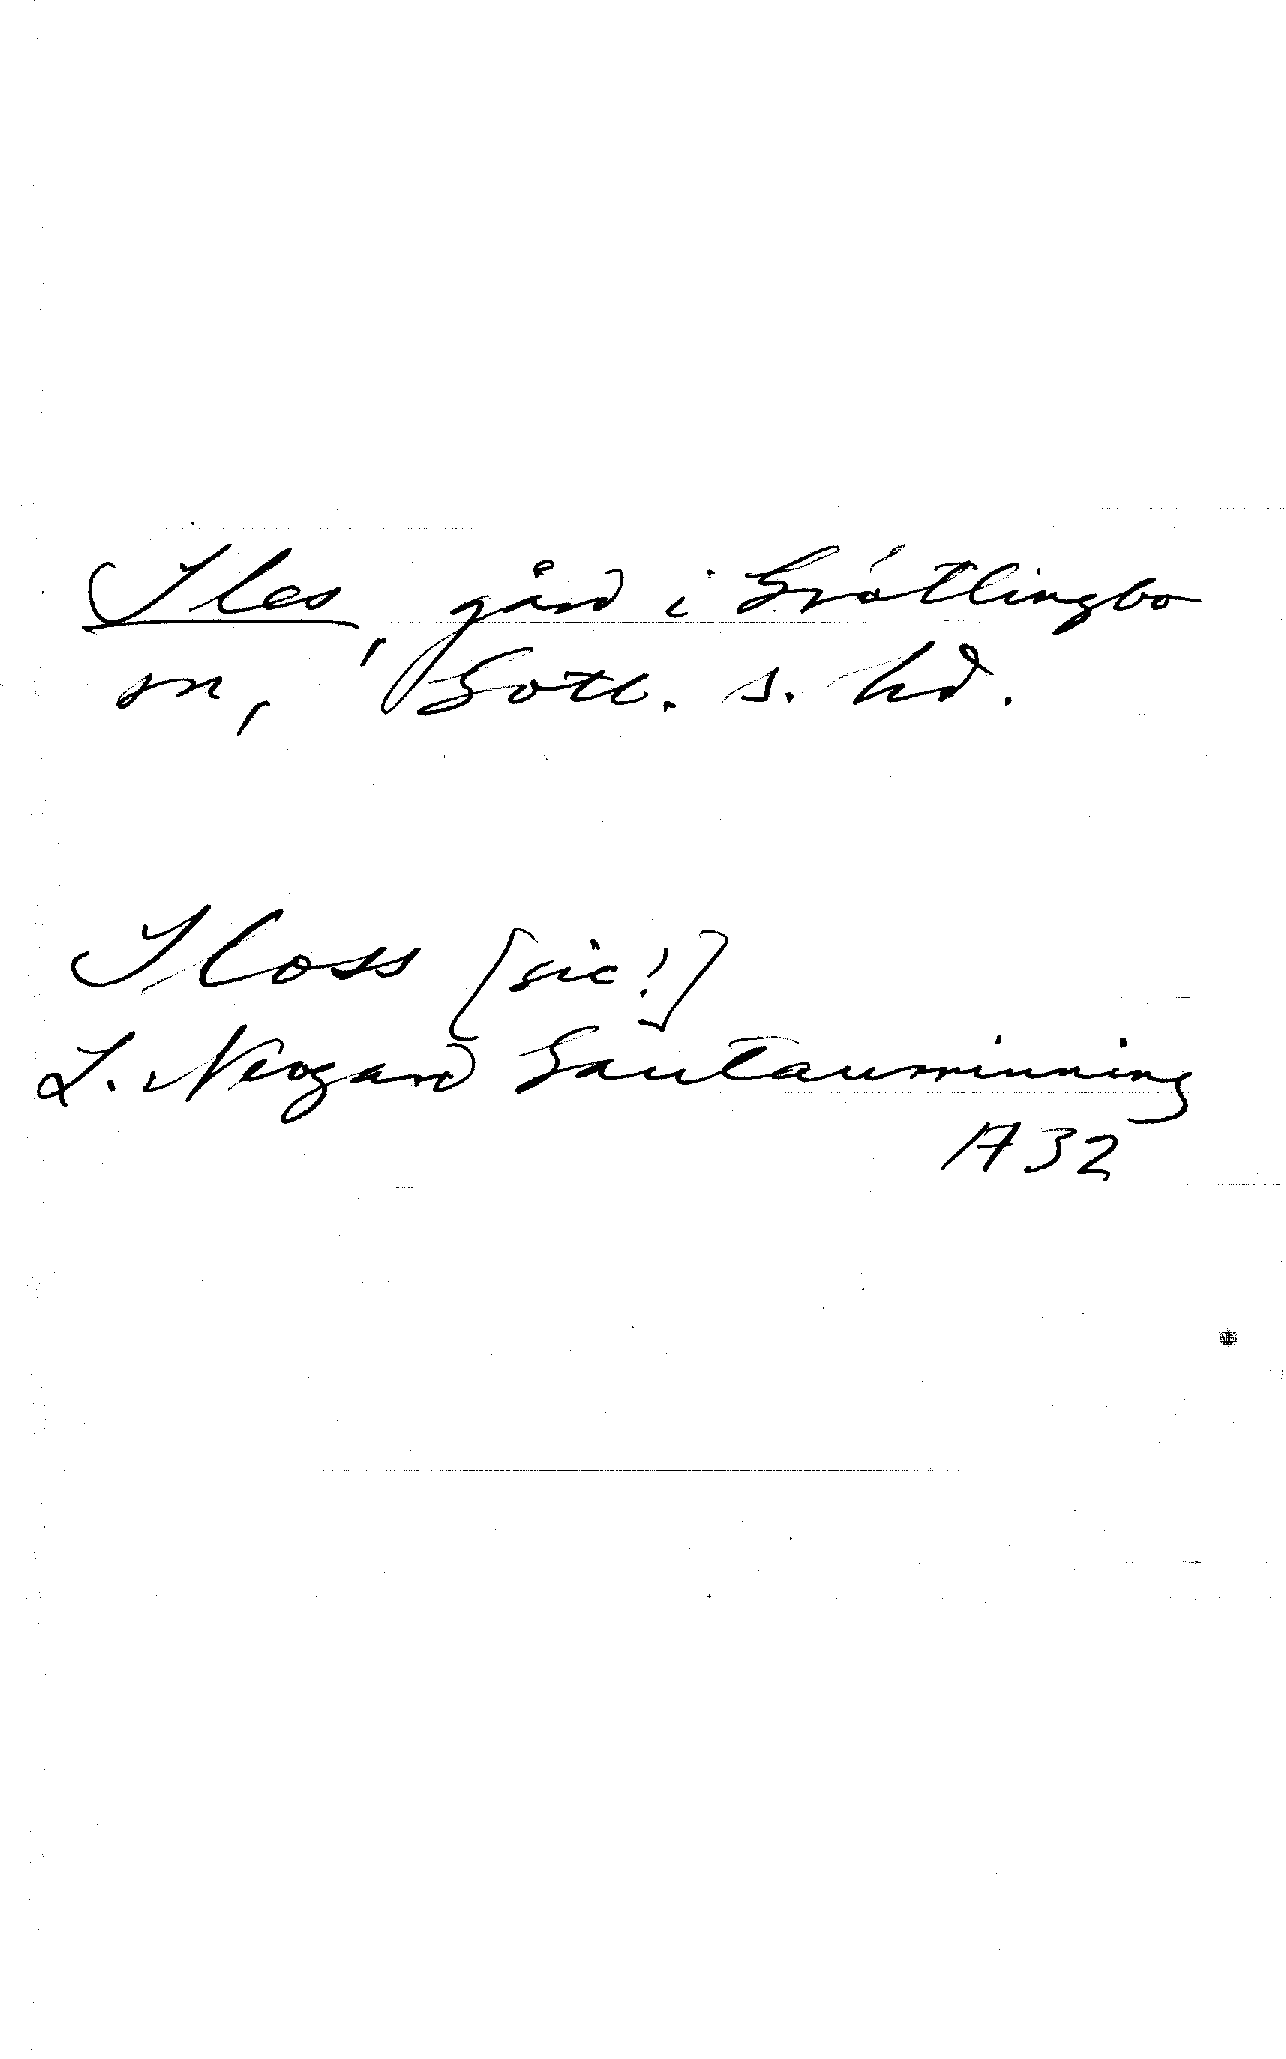 Iles, gård i Grötlingbo
sn, Gotl. s. hd.
Iloss [sic!]
L. Neogard Gautauminning
A 32